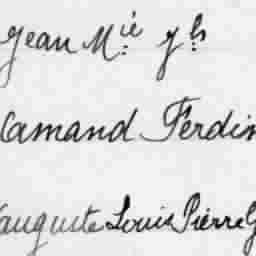 Jean Mie
Camand Ferdin
auguste Louis Pierre G